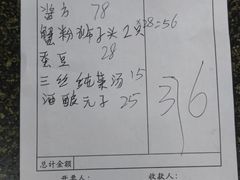 酱方 78
蟹粉狮子头2只 28=56
蚕豆 28
三丝莼菜汤 15
酒酿元子 25
36
总计金额
开票人: 收款人: